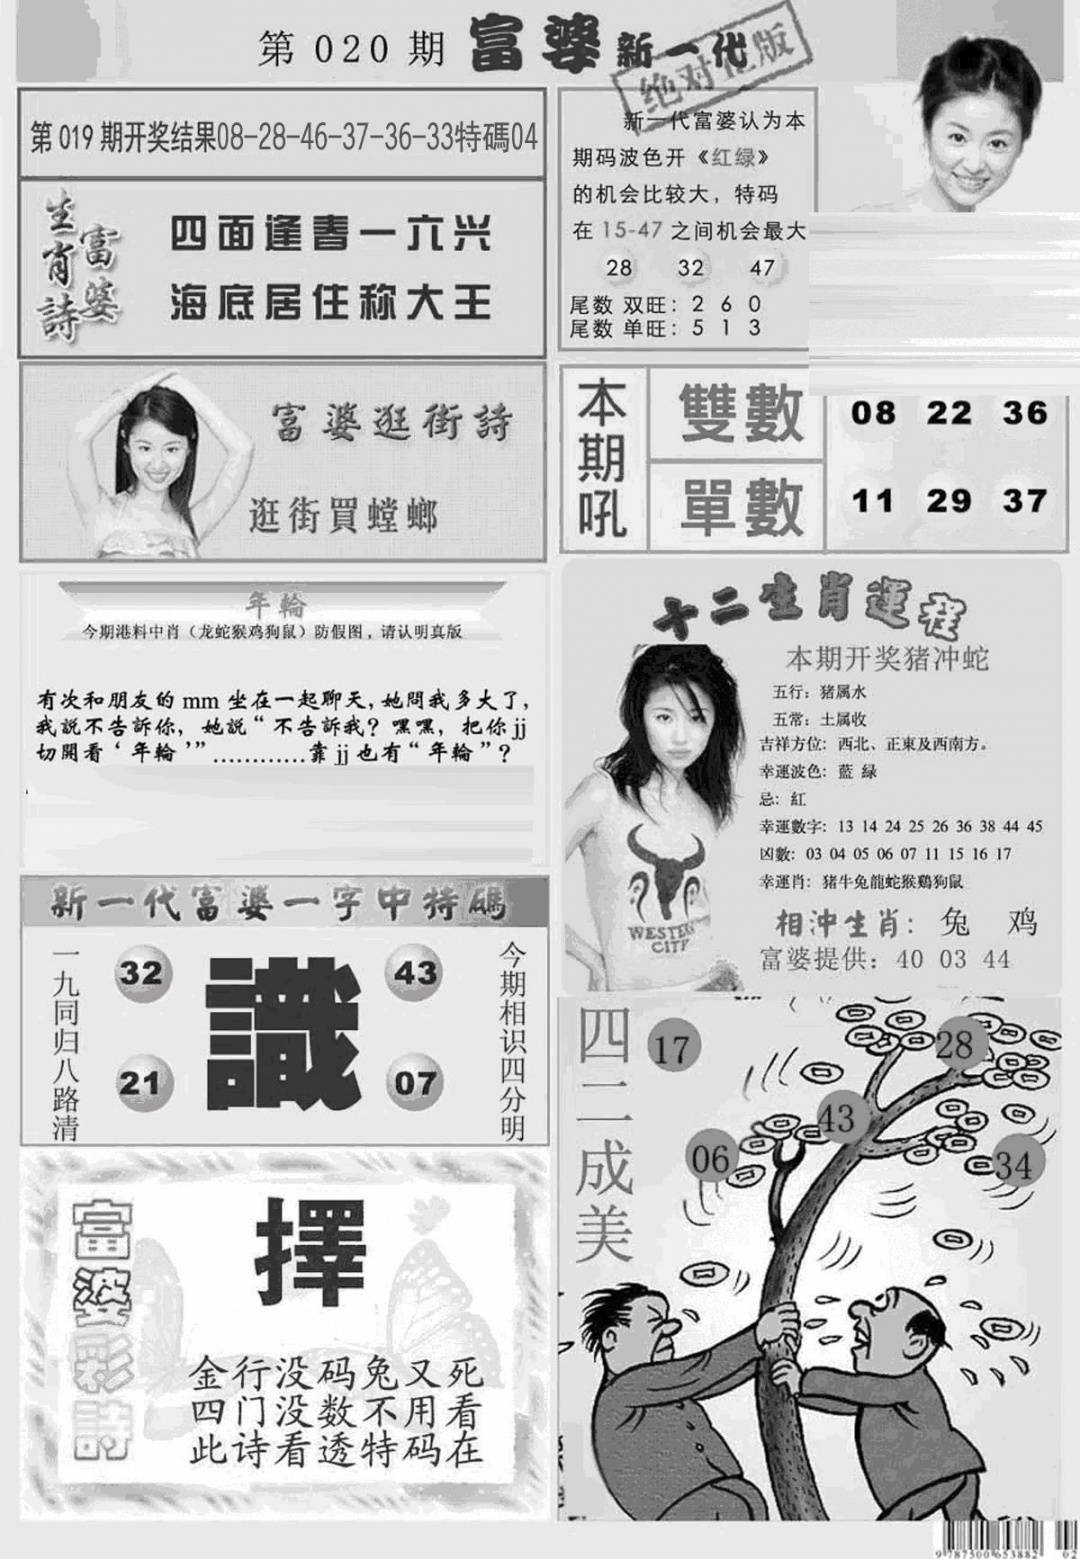 第 020 期 富婆 新一代
绝对正版
第 019 期开奖结果08-28-46-37-36-33特碼04
生肖詩
富婆
四面逢春一六兴
海底居住称大王
新一代富婆认为本
期码波色开《红绿》
的机会比较大，特码
在 15-47 之间机会最大
28 32 47
尾数 双旺：2 6 0
尾数 单旺：5 1 3
富婆逛街詩
逛街買螳螂
本期吼
雙數
08 22 36
單數
11 29 37
年輪
今期港料中肖（龙蛇猴鸡狗鼠）防假图，请认明真版
有次和朋友的 mm 坐在一起聊天,她問我多大了,
我説不告訴你，她説“不告訴我？嘿嘿，把你 jj
切開看‘年輪’”…………靠 jj 也有“年輪”？
十二生肖運程
本期开奖猪冲蛇
五行：猪属水
五常：土属收
吉祥方位：西北、正東及西南方。
幸運波色：藍 緑
忌：紅
幸運數字：13 14 24 25 26 36 38 44 45
凶數：03 04 05 06 07 11 15 16 17
幸運肖：猪牛兔龍蛇猴鷄狗鼠
相沖生肖：兔 鸡
富婆提供：40 03 44
WESTERN
CITY
新一代富婆一字中特碼
一九同归八路清
32
43
識
21
07
今期相识四分明
四二一成美
17
28
43
06
34
富婆彩詩
擇
金行没码兔又死
四门没数不用看
此诗看透特码在
9787500653882 02